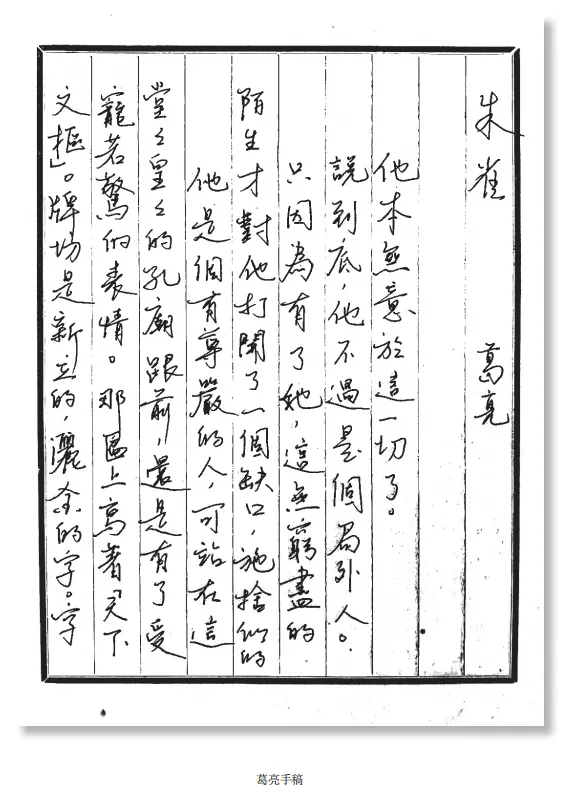 朱雀　葛亮
他本無意於這一切了。
說到底，他不過是個局外人。
只因為有了她，這無窮盡的
陌生才對他打開了一個缺口，施捨似的
他是個有尊嚴的人，可站在這
堂々皇々的孔廟跟前，最是有了受
寵若驚的表情。那匾上寫著「天下
文樞」。牌坊是新立的，灑金的字。字
葛亮手稿